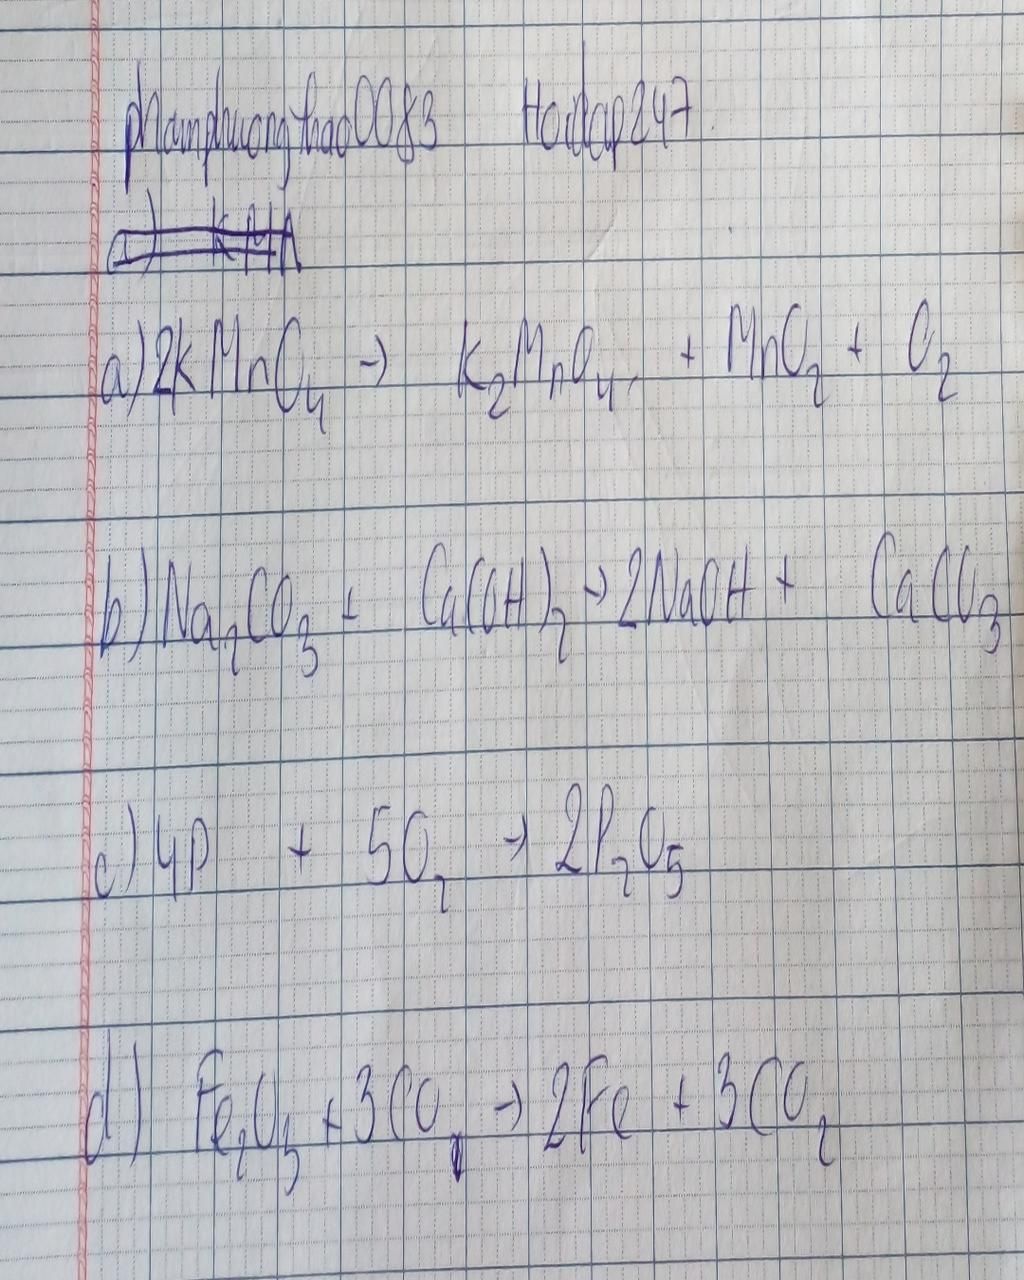 phamphuongthao0083 Hoidap247
a) KMn
a) 2KMnO₄ → K₂MnO₄ + MnO₂ + O₂
b) Na₂CO₃ + Ca(OH)₂ → 2NaOH + CaCO₃
c) 4P + 5O₂ → 2P₂O₅
d) Fe₂O₃ + 3CO → 2Fe + 3CO₂